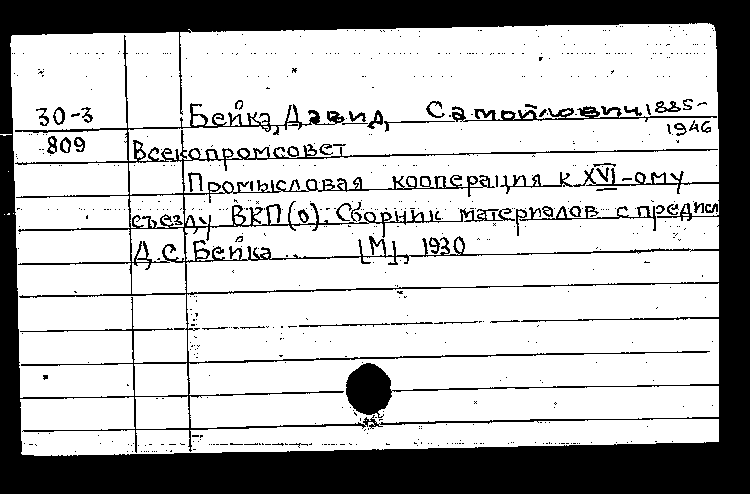 30-3 Бейка, Давид Самойлович, 1885-
1946
809 Всекопромсовет
Промысловая кооперация к XVI-ому
съезду ВКП(о): Сборник материалов с предисл
Д.С. Бейка ... [М], 1930